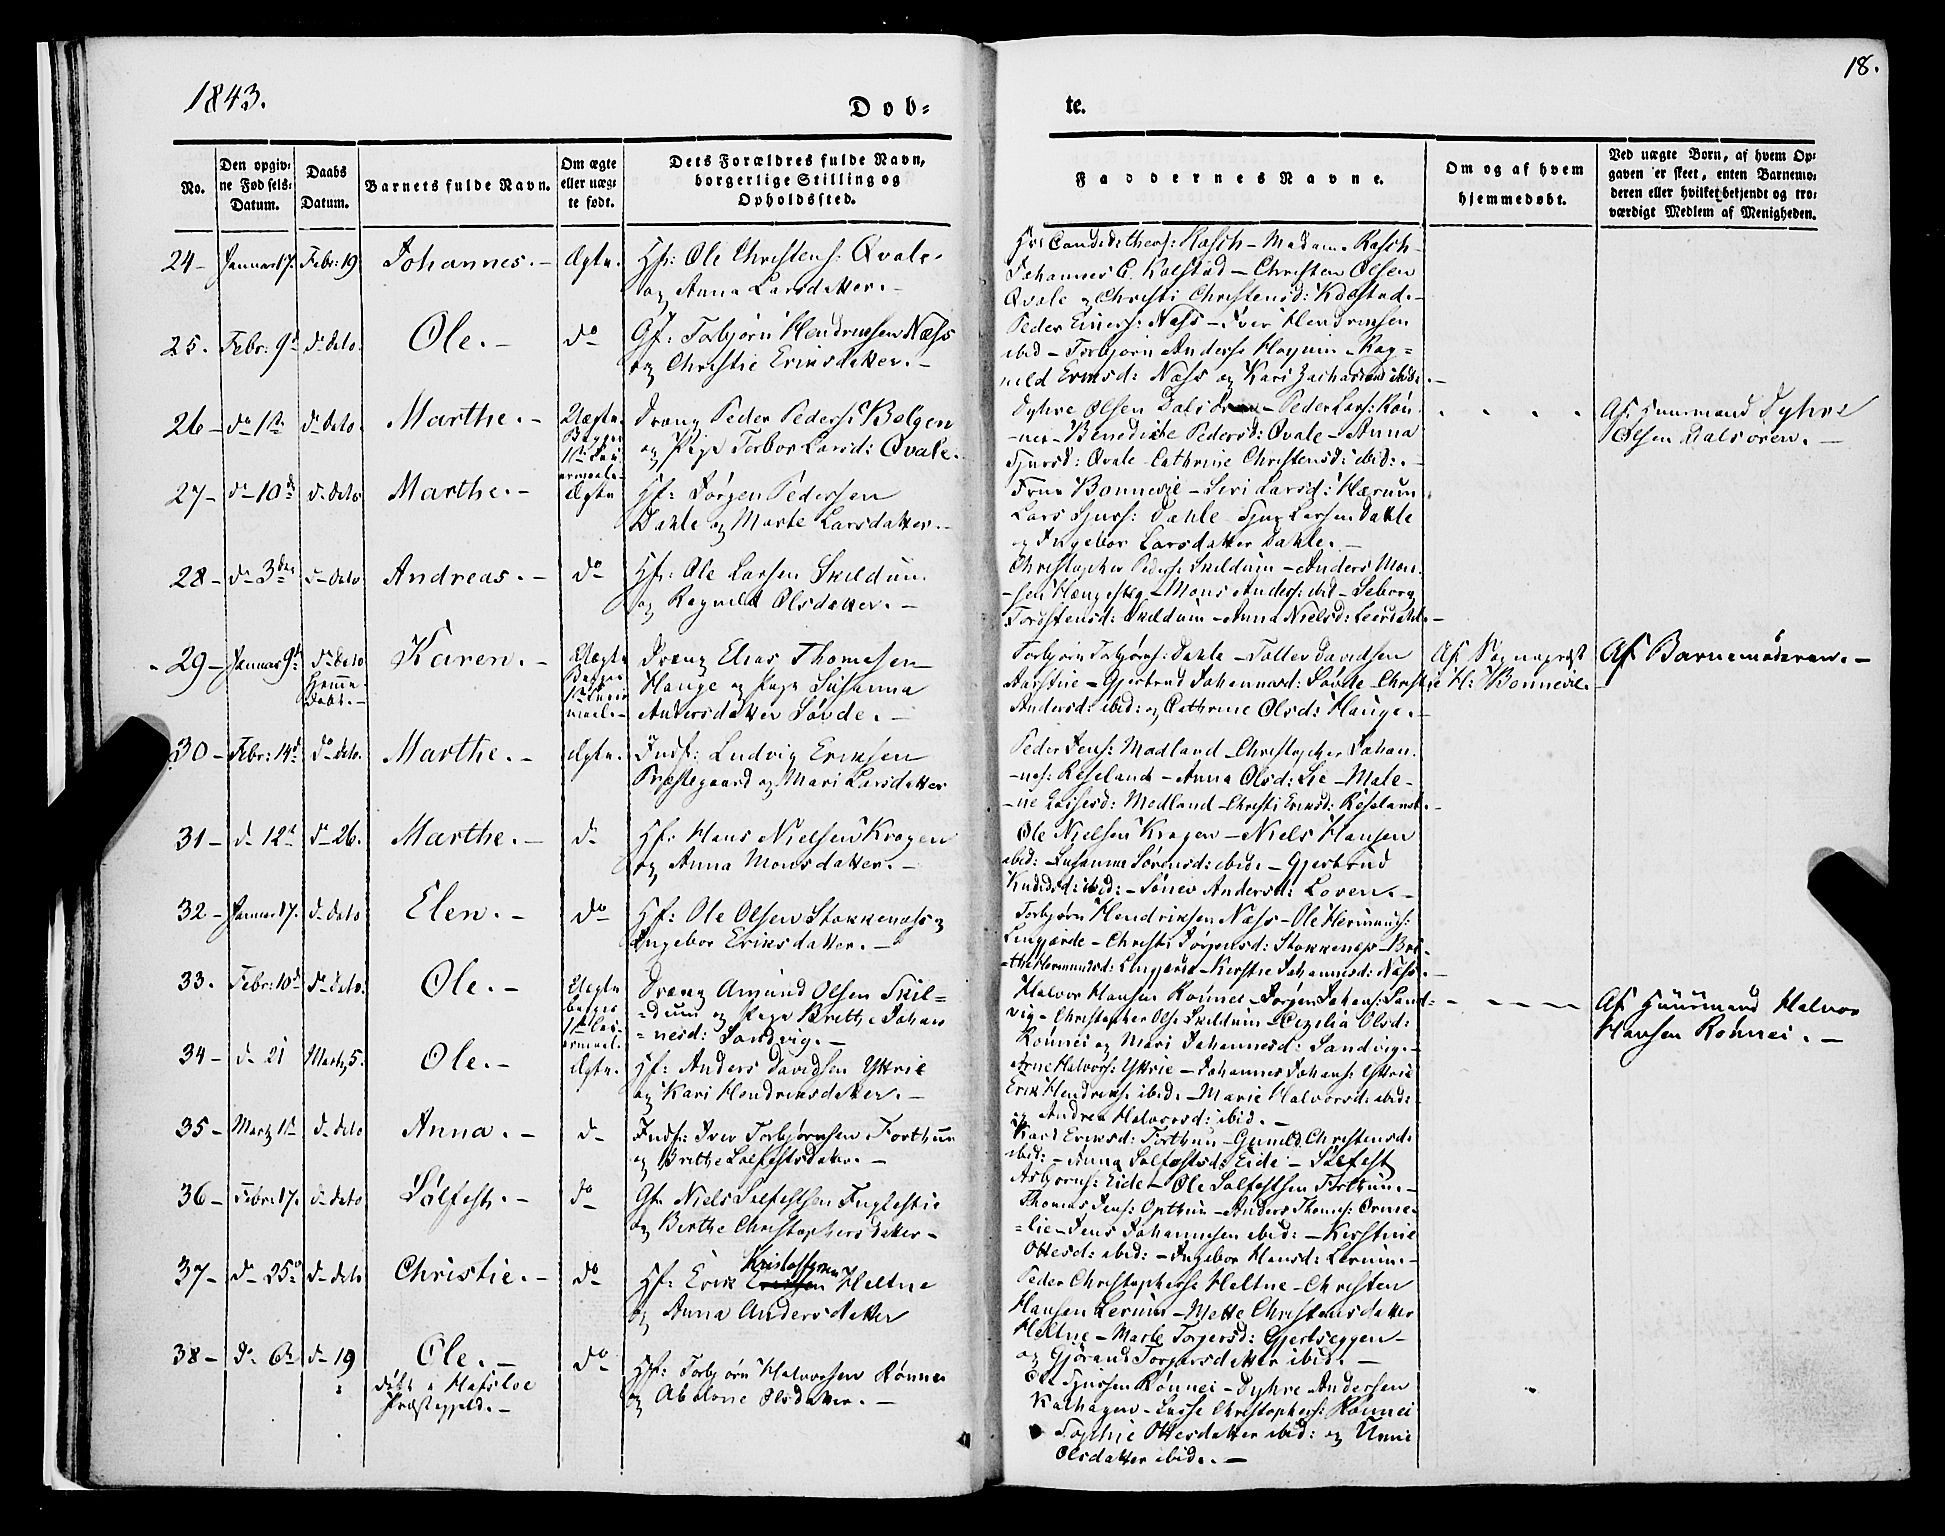 1843.
Dob=
te.
18.
No.
Den opgiv=
ne Fødsels=
Datum.
Daabs
Datum.
Barnets fulde Navn.
Om ægte
eller uægt
te født.
Dets Forældres fulde Navn,
borgerlige Stilling og
Opholdssted.
Faddernes Navne.
Om og af hvem
hjemmedøbt.
Ved uægte Børn, af hvem Op=
gaven er skeet, enten Barnemo=
deren eller hvilket bekjendt og tro=
værdigt Medlem af Menigheden.
24 - Januar 17. Febr: 19 Johannes. - Ægte. Hf: Ole Christens: Qvale.
og Anna Larsdatter. -
Hr: Candid: theol: Rasch - Madam Rasch
Johannes C. Kolstad - Christen Olsen
Qvale og Christi Christensd: Kolstad. -
25. Febr: 9de do deto. Ole. - do Gf: Torbjørn Hendriksen Næss
og Christie Eriksdatter. -
Peder Einers: Næss - Iver Hendriksen
ibid - Torbjørn Anders: Høyum - Rag=
nild Eriksd: Næss og Kari Zachariasd: ibid. -
26 - do 1ste do deto. Marthe. - Uægte
Begges
1ste Lei
ermaale.
Dreng Peder Peders: Bolgen
og Pige Torbor Larsd: Qvale.
Dyhre Olsen Dalsøren - Peder Lars: Røn
nei - Benedikte Pedersd: Qvale - Anna
Sjursd: Qvale - Cathrine Christensd: ibid: -
Af Huusmand Dyhre
Olsen Dalsøren. -
27 - do 10de do deto Marthe. - Ægte Hf: Jørgen Pedersen
Dahle og Marte Larsdatter. -
Frue Bonnevie - Siri Larsd: Hærum
Lars Sjurs: Dahle - Sjur Larsen Dahle
og Ingebor Larsdatter Dahle. -
28 - do 3die do deto Andreas. - do Hf: Ole Larsen Skildum
og Ragnild Olsdatter. -
Christopher Peders: Skildum - Anders Mon
sen - Mons Anders: ibid - Seborg
Torstensd: Skildum - Anna Nielsd: Leerdahl. -
29 - Januar 9de do deto
Hjemme
Døbt. -
Karen. - Uægte
Begges
1ste Leier
maal. -
Dreng Elias Thomesen
Hauge og Pige Susanna
Andersdatter Søvde. -
Torbjørn Torbjørns: Dahle - Tollev Davidsen
- Gjertrud Johannesd: Søvde - Christie
Andersd: ibid: og Cathrine Olsd: Hauge. -
Af Sogneprest
H: Bonnevie. -
Af Barnemoderen. -
30 - Febr: 14de do deto. Marthe. - Ægte. Inds: Ludvig Eriksen
Præstegaard og Mari Larsdatter
Peder Jens: Modland - Christopher Johan
nes: Røseland - Anna Olsd: Lie - Male-
ne Lassesd: Modland - Christi Eriksd: Røseland. -
31 - do 12te do 26. Marthe. - do Hf: Hans Nielsen Krogen
og Anna Monsdatter. -
Ole Nielsen Krogen - Niels Hansen
ibid: - Susanne Sørensd: ibid. - Gjertrud
Knudsd: ibid: - Søneva Andersd: Loven. -
32 - Januar 17. do deto Elen. - do Hf: Ole Olsen Stokkenæs og
Ingebor Eriksdatter. -
Torbjørn Hendriksen Næss - Ole Hermunds:
Lingjærde - Christi Jørgensd: Stokkenæs - Bri-
the Hermundsd: Lingjærde - Kirstie Johannesd: Næss. -
33. Febr: 10de do deto. Ole. - Uægte
begges
1ste Lei-
ermaal.
Dreng Amund Olsen Skil=
=dum og Pige Brithe Johan
=nesd: Sandvig. -
Halvor Hansen Rønnei - Jørgen Johans: Sand=
vig - Christopher Ols: Skildum - Cecilia Olsd:
Rønnei og Mari Johannesd: Sandvig. -
Af Huusmand Halvor
Hansen Rønnei. -
34 - do 21 Marts 5: Ole. - Ægte. Hf: Anders Davidsen Yttrie
og Kari Hendriksdatter. -
Arne Halvors: Yttrie - Johannes Johans: Yttrie
Erik Hendriks: ibid. - Marie Halvorsd: ibid:
og Andrea Halvorsd: ibid. -
35 - Marts 1ste do deto Anna. - do Inds: Iver Torbjørnsen Forthun
og Brithe Sølfestsdatter. -
Kari Eriksd: Forthun - Gunild Christensd:
ibid: - Anna Sølfestsd: Eide - Sølfest
Asbjørns: Eide - Ole Sølfestsen Forthun. -
36 - Febr: 17. do deto Sølfest. - do Gf: Niels Sølfestsen
og Berthe Christophersdatter -
Thomas Jens: Opthun - Anders Thomes: Orme-
=lie - Jens Johannesen ibid - Kirstine
Ottesd: ibid: - Ingebor Hansd: Lerum. -
37 - do 25de do deto Christie. - do Hf: Erik Kristoffersen Heltne
og Anna Andersdatter
Peder Christophers: Heltne - Christen
Hansen Lerum - Mette Christensdatter
Heltne - Marte Torgersd: Gjertseggen -
og Gjørand Torgersdatter ibid. -
38 - do 6te do 19 Ole. -
døbt i Hafsloe
Præstegjeld. -
do Hf: Torbjørn Halvorsen Rønnei
og Abelone Olsdatter. -
Ole Sjursen Rønnei - Dyhre Andersen
- Lasse Christophers: Rønnei
Sophie Ottesdatter ibid: og Unni
Olsdatter ibid. -